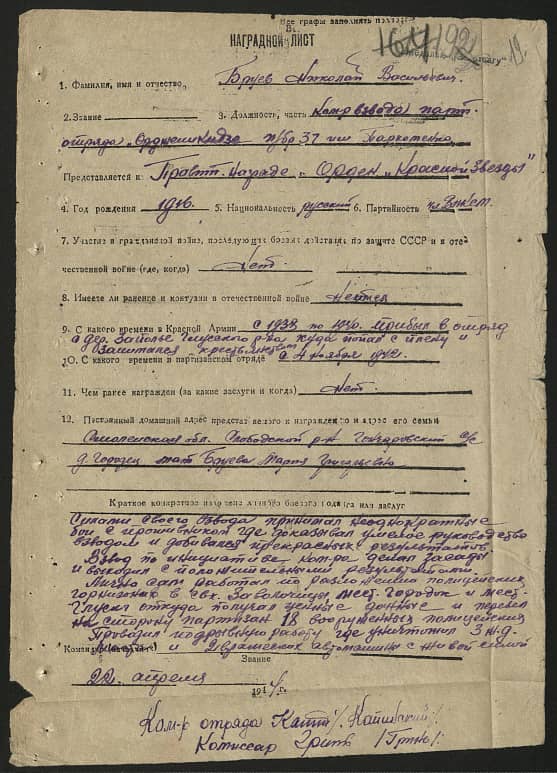 Все графы заполнять полностью
НАГРАДНОЙ ЛИСТ
1. Фамилия, имя и отчество Бруев Николай Васильевич
2. Звание 3. Должность, часть Ком-р взвода парт.
отряда "Орджоникидзе п/бр 37 им Пархоменко
Представляется к Правит. Награде "Орден "Красной Звезды"
4. Год рождения 5. Национальность русский 6. Партийность ВЛКСМ
7. Участие в гражданской войне, последующих боевых действиях по защите СССР и в оте-
чественной войне (где, когда) Нет
8. Имеет ли ранения и контузии в отечественной войне
9. С какого времени в Красной Армии с 1938 по прибыл в отряд
с дер. Заполье Глусского р-на куда попал с плену и
10. С какого времени в партизанском отряде с 4 ноября 1942.
11. Чем ранее награжден (за какие заслуги и когда) Нет.
12. Постоянный домашний адрес представляемого к награждению и адрес его семьи
Смоленская обл. Слободской р-н Гончаровский с/с
д. Городец мать Бруева Мария Григорьевна
Краткое конкретное изложение личного боевого подвига или заслуг
Силами своего взвода принимал неоднократные
бои с противником где показывал умелое руководство
взводом и добивался прекрасных результатов.
Взвод по инициативе ком-ра делал засады
и выходил с положительными результатами
Лично сам работал по разложению полицейских
гарнизонов в свх. Заволочицы, мест. Городок и мест.
Глуск откуда получал ценные данные и перевел
на сторону партизан 18 вооруженных полицейских
Проводил подрывную работу где уничтожил 3 ж.д.
и 2 вражеских автомашины с живой силой
Звание
22 апреля 1944 г.
Ком-р отряда Капит.
Комиссар Гринь /Гринь/